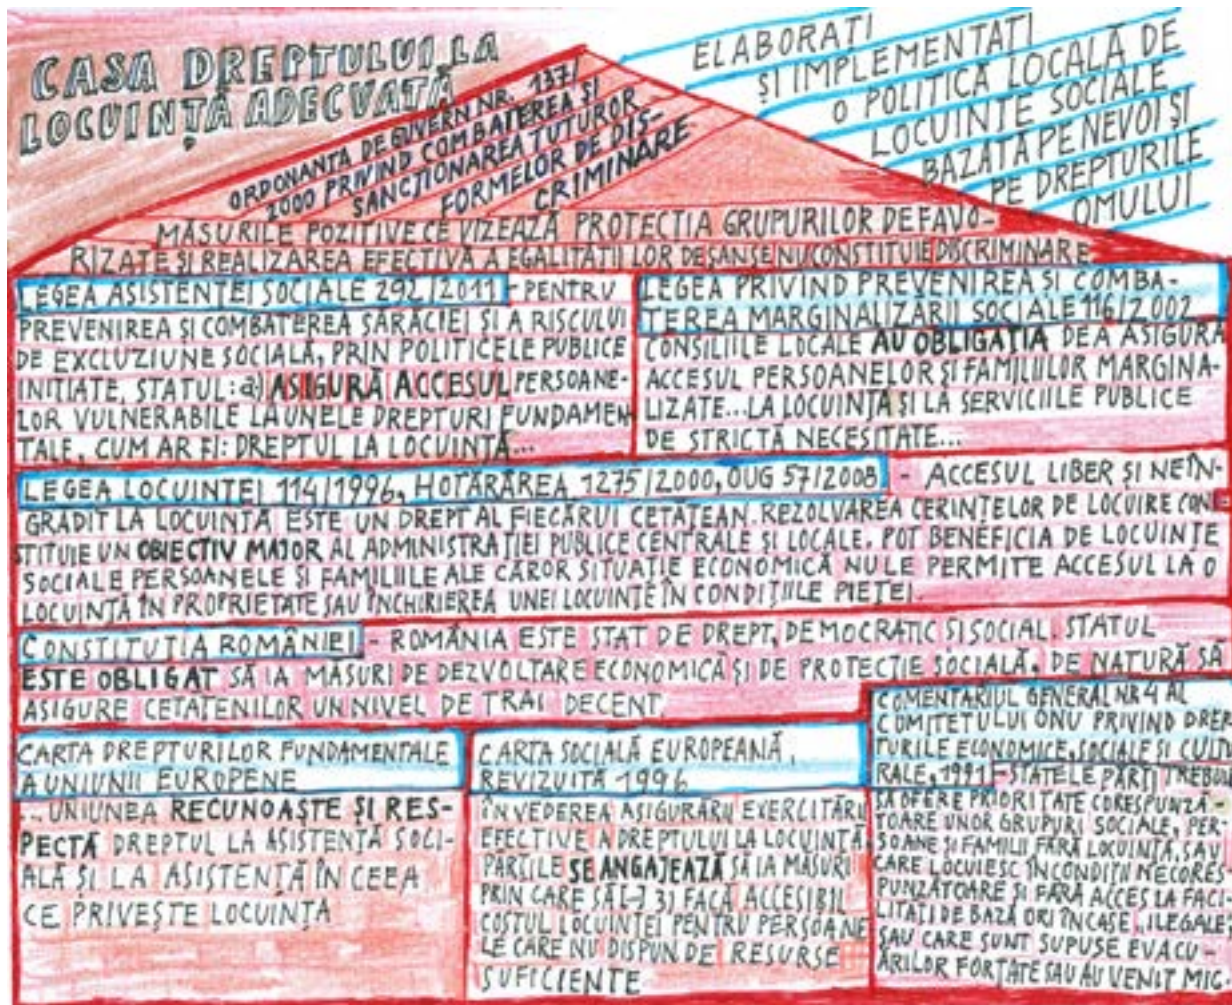 CASA DREPTULUI LA
LOCUINȚĂ ADECVATĂ
ORDONANȚA DE GUVERN NR. 137/
2000 PRIVIND COMBATEREA ȘI
SANCȚIONAREA TUTUROR
FORMELOR DE DIS-
CRIMINARE
ELABORAȚI
ȘI IMPLEMENTAȚI
O POLITICĂ LOCALĂ DE
LOCUINȚE SOCIALE
BAZATĂ PE NEVOI ȘI
PE DREPTURILE
OMULUI
MĂSURILE POZITIVE CE VIZEAZĂ PROTECȚIA GRUPURILOR DEFAVO-
RIZATE ȘI REALIZAREA EFECTIVĂ A EGALITĂȚII LOR DE ȘANSE NU CONSTITUIE DISCRIMINARE
LEGEA ASISTENȚEI SOCIALE 292/2011 - PENTRU
PREVENIREA ȘI COMBATEREA SĂRĂCIEI ȘI A RISCULUI
DE EXCLUZIUNE SOCIALĂ, PRIN POLITICELE PUBLICE
INIȚIATE, STATUL: a) ASIGURĂ ACCESUL PERSOANE-
LOR VULNERABILE LA UNELE DREPTURI FUNDAMEN-
TALE, CUM AR FI: DREPTUL LA LOCUINȚĂ...
LEGEA PRIVIND PREVENIREA ȘI COMBA-
TEREA MARGINALIZĂRII SOCIALE 116/2002
CONSILIILE LOCALE AU OBLIGAȚIA DE A ASIGURA
ACCESUL PERSOANELOR ȘI FAMIILOR MARGINA-
LIZATE... LA LOCUINȚĂ ȘI LA SERVICIILE PUBLICE
DE STRICTĂ NECESITATE...
LEGEA LOCUINȚEI 114/1996, HOTĂRÂREA 1275/2000, OUG 57/2008 - ACCESUL LIBER ȘI NEÎN-
GRĂDIT LA LOCUINȚĂ ESTE UN DREPT AL FIECĂRUI CETĂȚEAN. REZOLVAREA CERINȚELOR DE LOCUIRE CON-
STITUIE UN OBIECTIV MAJOR AL ADMINISTRAȚIEI PUBLICE CENTRALE ȘI LOCALE. POT BENEFICIA DE LOCUINȚE
SOCIALE PERSOANELE ȘI FAMILIILE ALE CĂROR SITUAȚIE ECONOMICĂ NU LE PERMITE ACCESUL LA O
LOCUINȚĂ ÎN PROPRIETATE SAU ÎNCHIRIEREA UNEI LOCUINȚE ÎN CONDIȚIILE PIEȚEI.
CONSTITUȚIA ROMÂNIEI - ROMÂNIA ESTE STAT DE DREPT, DEMOCRATIC ȘI SOCIAL. STATUL
ESTE OBLIGAT SĂ IA MĂSURI DE DEZVOLTARE ECONOMICĂ ȘI DE PROTECȚIE SOCIALĂ, DE NATURĂ SĂ
ASIGURE CETĂȚENILOR UN NIVEL DE TRAI DECENT.
CARTA DREPTURILOR FUNDAMENTALE
A UNIUNII EUROPENE
...UNIUNEA RECUNOAȘTE ȘI RES-
PECTĂ DREPTUL LA ASISTENȚĂ SOCI-
ALĂ ȘI LA ASISTENȚĂ ÎN CEEA
CE PRIVEȘTE LOCUINȚA
CARTA SOCIALĂ EUROPEANĂ,
REVIZUITĂ 1996
ÎN VEDEREA ASIGURĂRII EXERCITĂRII
EFECTIVE A DREPTULUI LA LOCUINȚĂ
PĂRȚILE SE ANGAJEAZĂ SĂ IA MĂSURI
PRIN CARE SĂ[-] 3) FACĂ ACCESIBIL
COSTUL LOCUINȚEI PENTRU PERSOANE
LE CARE NU DISPUN DE RESURSE
SUFICIENTE
COMENTARIUL GENERAL NR 4 AL
COMITETULUI ONU PRIVIND DREP
TURILE ECONOMICE, SOCIALE ȘI CULTU
RALE, 1991 - STATELE PĂRȚI TREBUI
SĂ OFERE PRIORITATE CORESPUNZĂ-
TOARE UNOR GRUPURI SOCIALE, PER-
SOANE ȘI FAMILII FĂRĂ LOCUINȚĂ, SAU
CARE LOCUIESC ÎN CONDIȚII NECORES
PUNZĂTOARE ȘI FĂRĂ ACCES LA FACI
LITĂȚI DE BAZĂ ORI ÎN CASE „ILEGALE,
SAU CARE SUNT SUPUSE EVACU-
ĂRILOR FORȚATE SAU AU VENIT MIC.